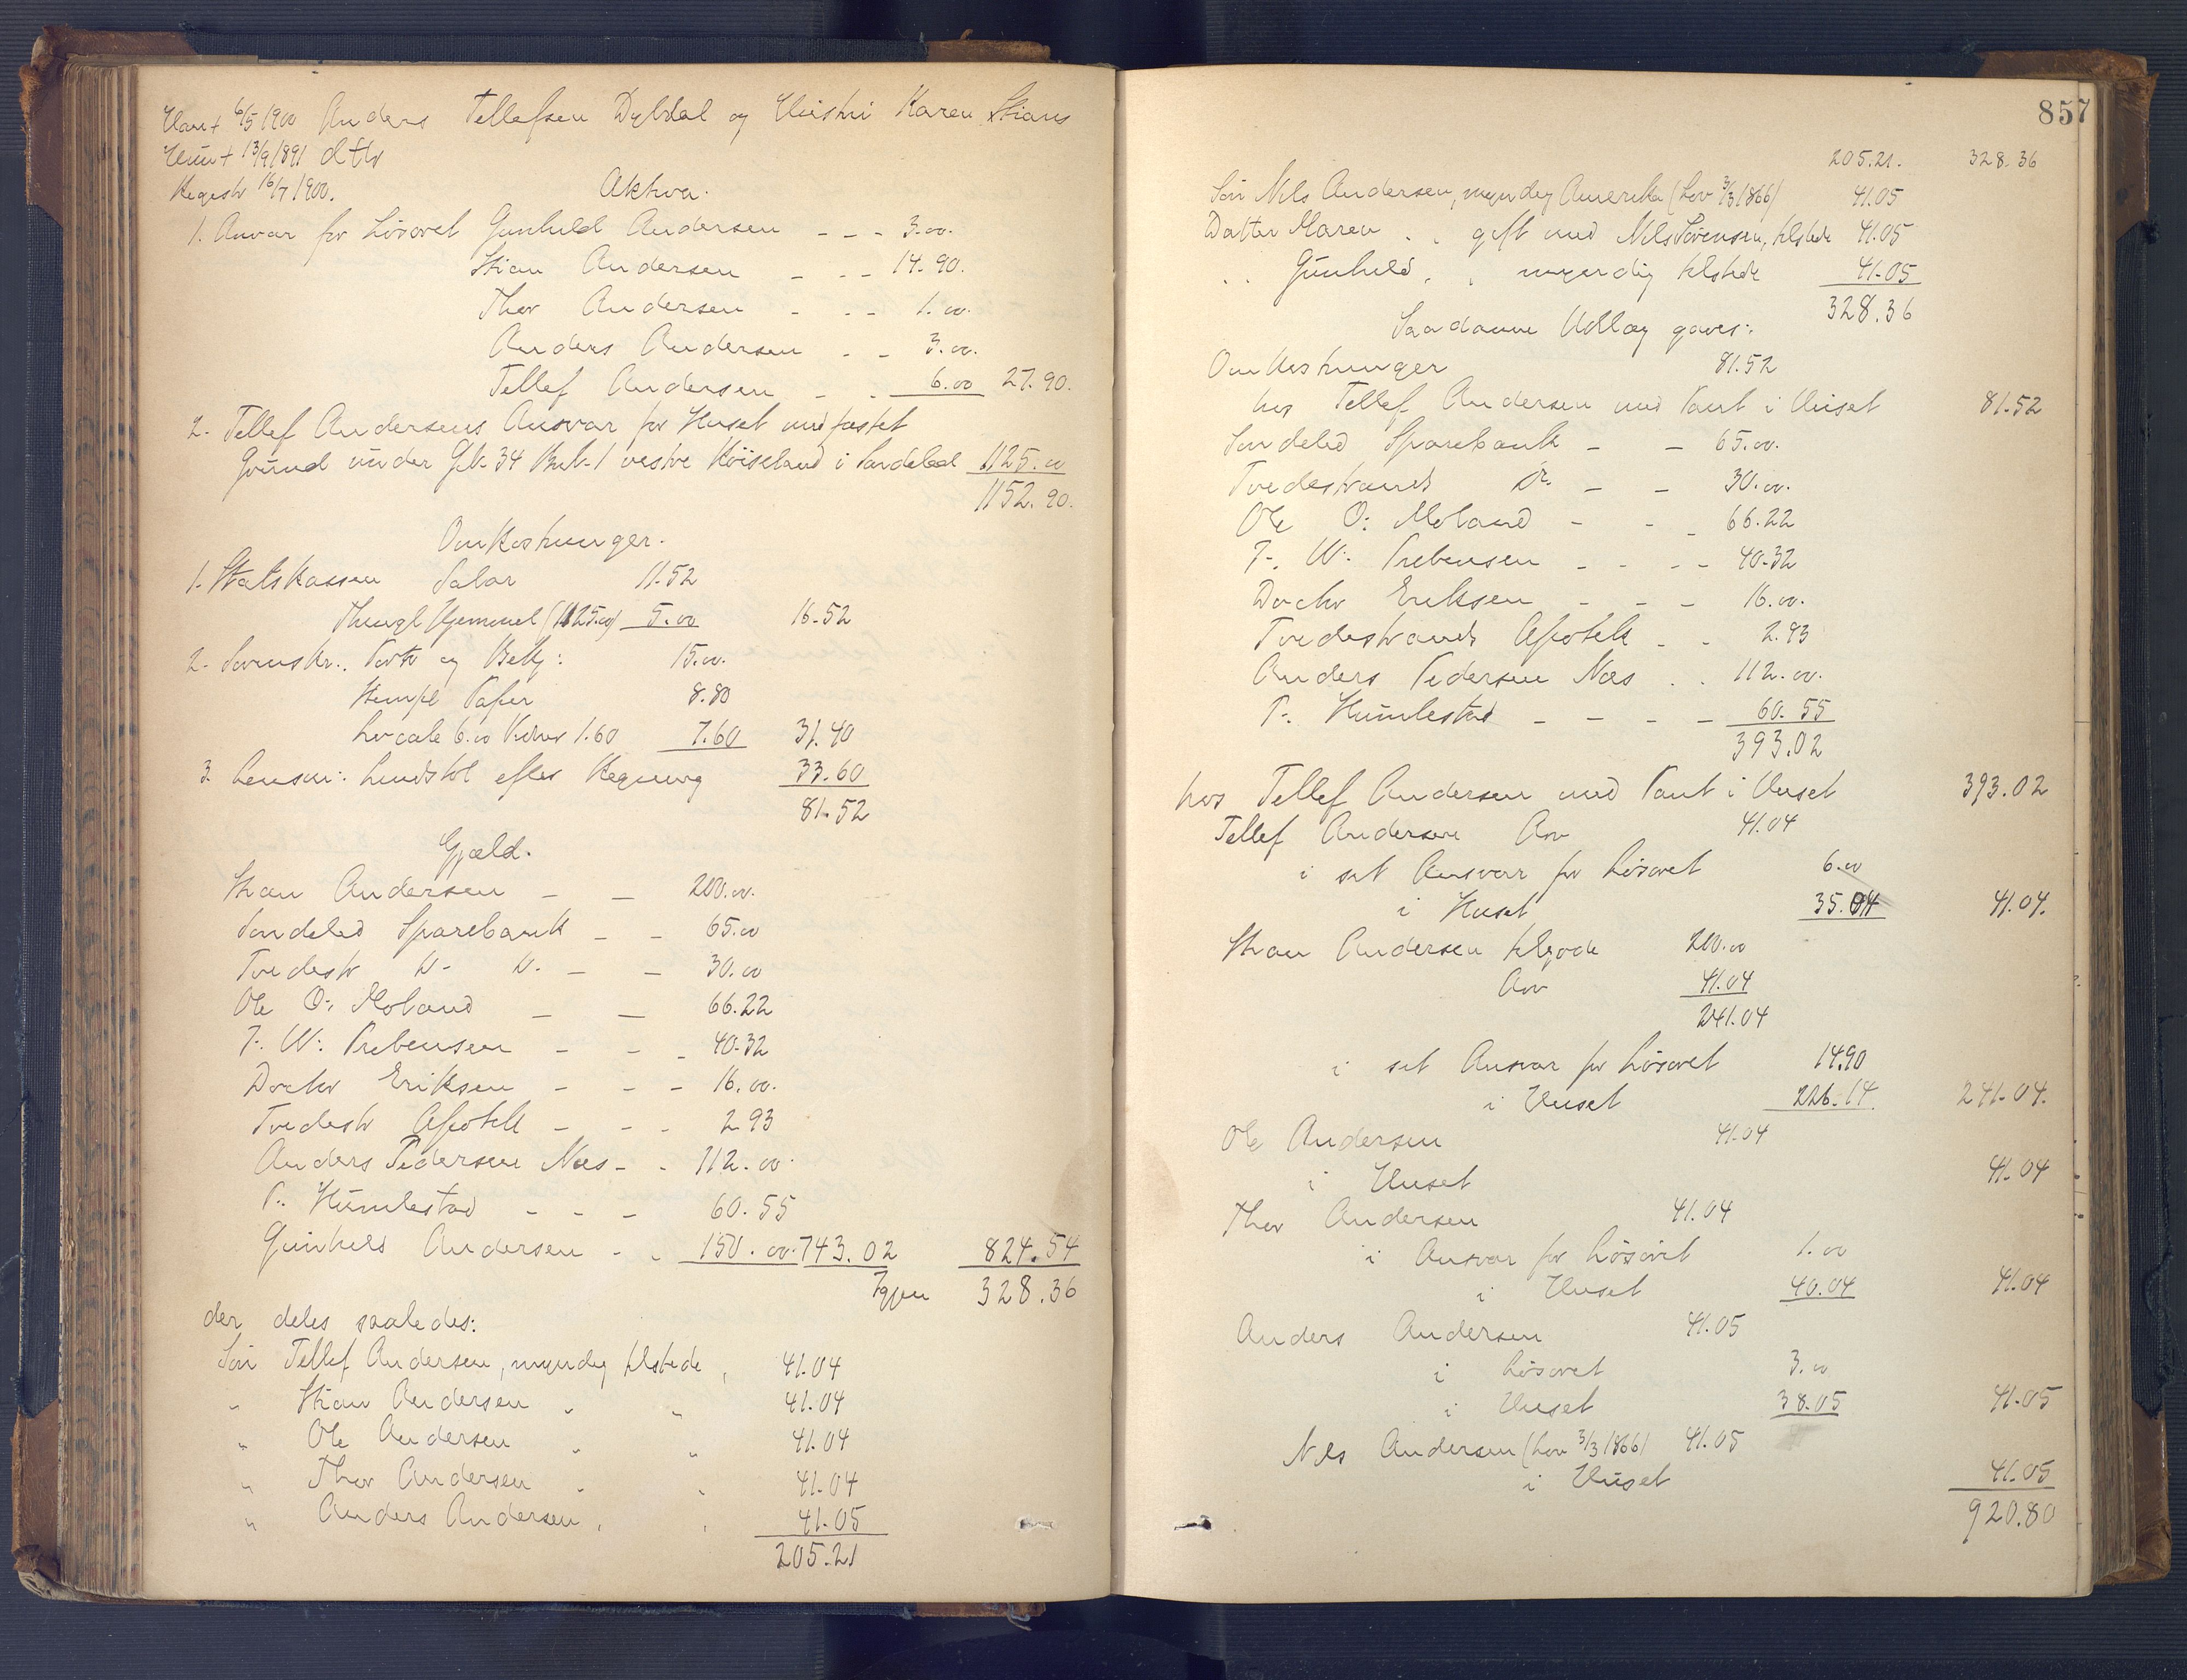 Han † 6/5 1900 Anders Tellefsen Dybdal og Hustru Karen Stians
Hun † 13/9 1891 dtr
Registr 16/7 1900.
Aktiva.
1. Ansvar for Løsøret Gunhild Andersen - - - 3.00.
Stian Andersen - - - 14.90.
Thor Andersen - - - 1.00.
Anders Andersen - - 3.00.
Tellef Andersen - - 6.00 27.90.
2. Tellef Andersens Ansvar for Huset med fæstet
Grund under G.N. 34 Br.N. 1 vestre Röiseland i Søndeled 1125.00
1152.90.
Omkostninger.
1. Statskassen Salar 11.52
Thingl Hjemmel (1125.00) 5.00 16.52
2. Sorenskr.. Porto og Bekj: 15.00.
Stempl Papir 8.80
Locale 6.00 Vidner 1.60 7.60 31.40
3. Lensm: Lundstol efter Regning 33.60
81.52
Gjæld.
Stian Andersen - - 200.00.
Søndeled Sparebank - - 65.00
Tvedestr D- D. - - 30.00
Ole O: Moland - - 66.22
F. W: Prebensen - - - 40.32
Doctor Eriksen - - - 16.00.
Tvedestr Apothek - - - 2.93
Anders Pedersen Næs - - 112.00.
P. Humlestad - - - 60.55
Gunhild Andersen - - 150.00. 743.02 824.54
Igjen 328.36
der deles saaledes:
Søn Tellef Andersen, myndig tilstede, 41.04
" Stian Andersen " " 41.04
" Ole Andersen " " 41.04
" Thor Andersen " " 41.04
" Anders Andersen " " 41.05
205.21
857
205.21. 328.36
Søn Nils Andersen, myndig Amerika (Lov 3/3 1866) 41.05
Datter Maren . . gift med Nils Sörensen, tilstede 41.05
. . Gunhild . . myndig tilstede 41.05
328.36
Saadanne Udlæg gaves:
Omkostninger 81.52
hos Tellef Andersen med Pant i Huset 81.52
Søndeled Sparebank - - 65.00.
Tvedestrands Do. - - 30.00.
Ole O: Moland - - - 66.22
F. W: Prebensen - - - - 40.32
Doctor Eriksen - - - 16.00.
Tvedestrands Apothek - - 2.93
Anders Pedersen Næs . . 112.00.
P. Humlestad - - - - 60.55
393.02
hos Tellef Andersen med Pant i Huset 393.02
Tellef Andersen Arv 41.04
i sit Ansvar for Løsøret 6.00
i Huset 35.04 41.04.
Stian Andersen tilgode 200.00
Arv 41.04
241.04
i sit Ansvar for Løsøret 14.90
i Huset 226.14. 241.04.
Ole Andersen 41.04
i Huset 41.04
Thor Andersen 41.04
i Ansvar for Løsøret 1.00
i Huset 40.04 41.04
Anders Andersen 41.05
i Løsøret 3.00
i Huset 38.05 41.05
Nils Andersen (Lov 3/3 1866) 41.05
i Huset 41.05
920.80